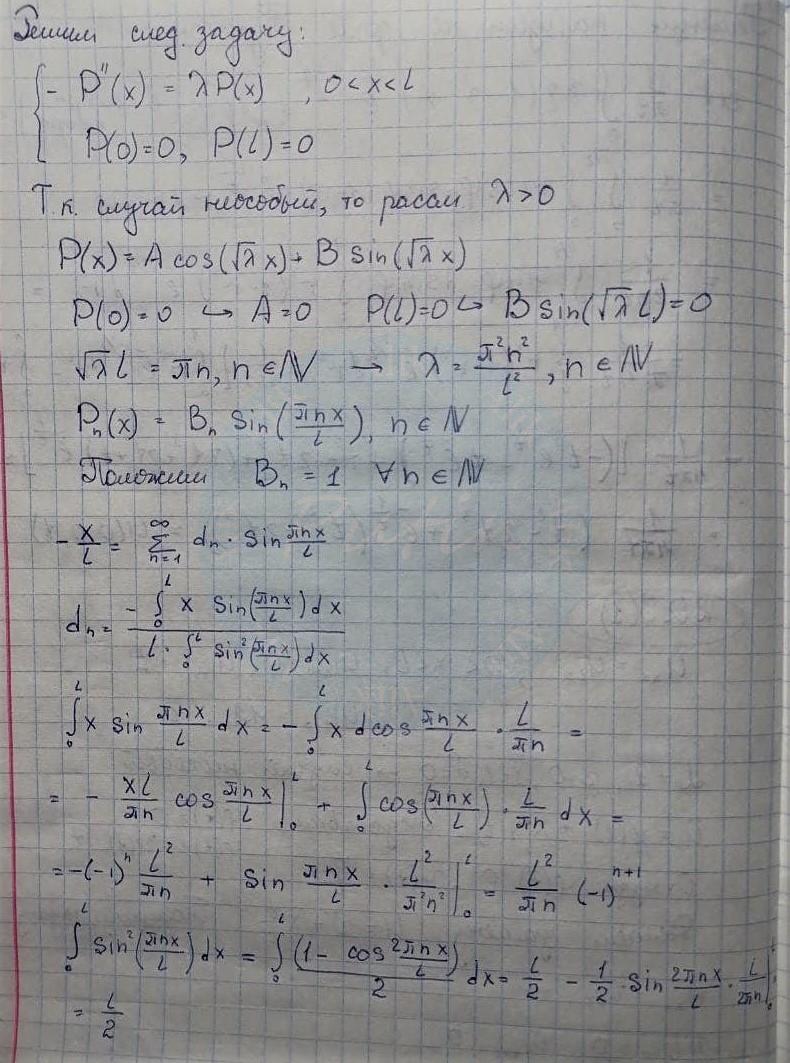 Решим след. задачу:
{ - P''(x) = λP(x) , 0 < x < l
P(0)=0, P(l)=0
Т.к. случай неособый, то рассм λ > 0
P(x) = A cos(√λ x) + B sin(√λ x)
P(0)=0 ↪ A=0 P(l)=0 ↪ B sin(√λ l)=0
√λ l = πn, n ∈ ℕ → λ = π²n²/l², n ∈ ℕ
Pₙ(x) = Bₙ sin(πnx/l), n ∈ ℕ
Положим Bₙ = 1 ∀n ∈ ℕ
- x/l = ∑_{n=1}^{∞} dₙ · sin πnx/l
dₙ = - ∫₀ˡ x sin(πnx/l) dx / l · ∫₀ˡ sin²(πnx/l) dx
∫₀ˡ x sin πnx/l dx = - ∫₀ˡ x d cos πnx/l · l/πn =
= - xl/πn cos πnx/l |₀ˡ + ∫₀ˡ cos(πnx/l) · l/πn dx =
= -(-1)ⁿ l²/πn + sin πnx/l · l²/π²n² |₀ˡ = l²/πn (-1)ⁿ⁺¹
∫₀ˡ sin²(πnx/l) dx = ∫₀ˡ (1 - cos 2πnx/l)/2 dx = l/2 - 1/2 · sin 2πnx/l · l/2πn |₀ˡ
= l/2